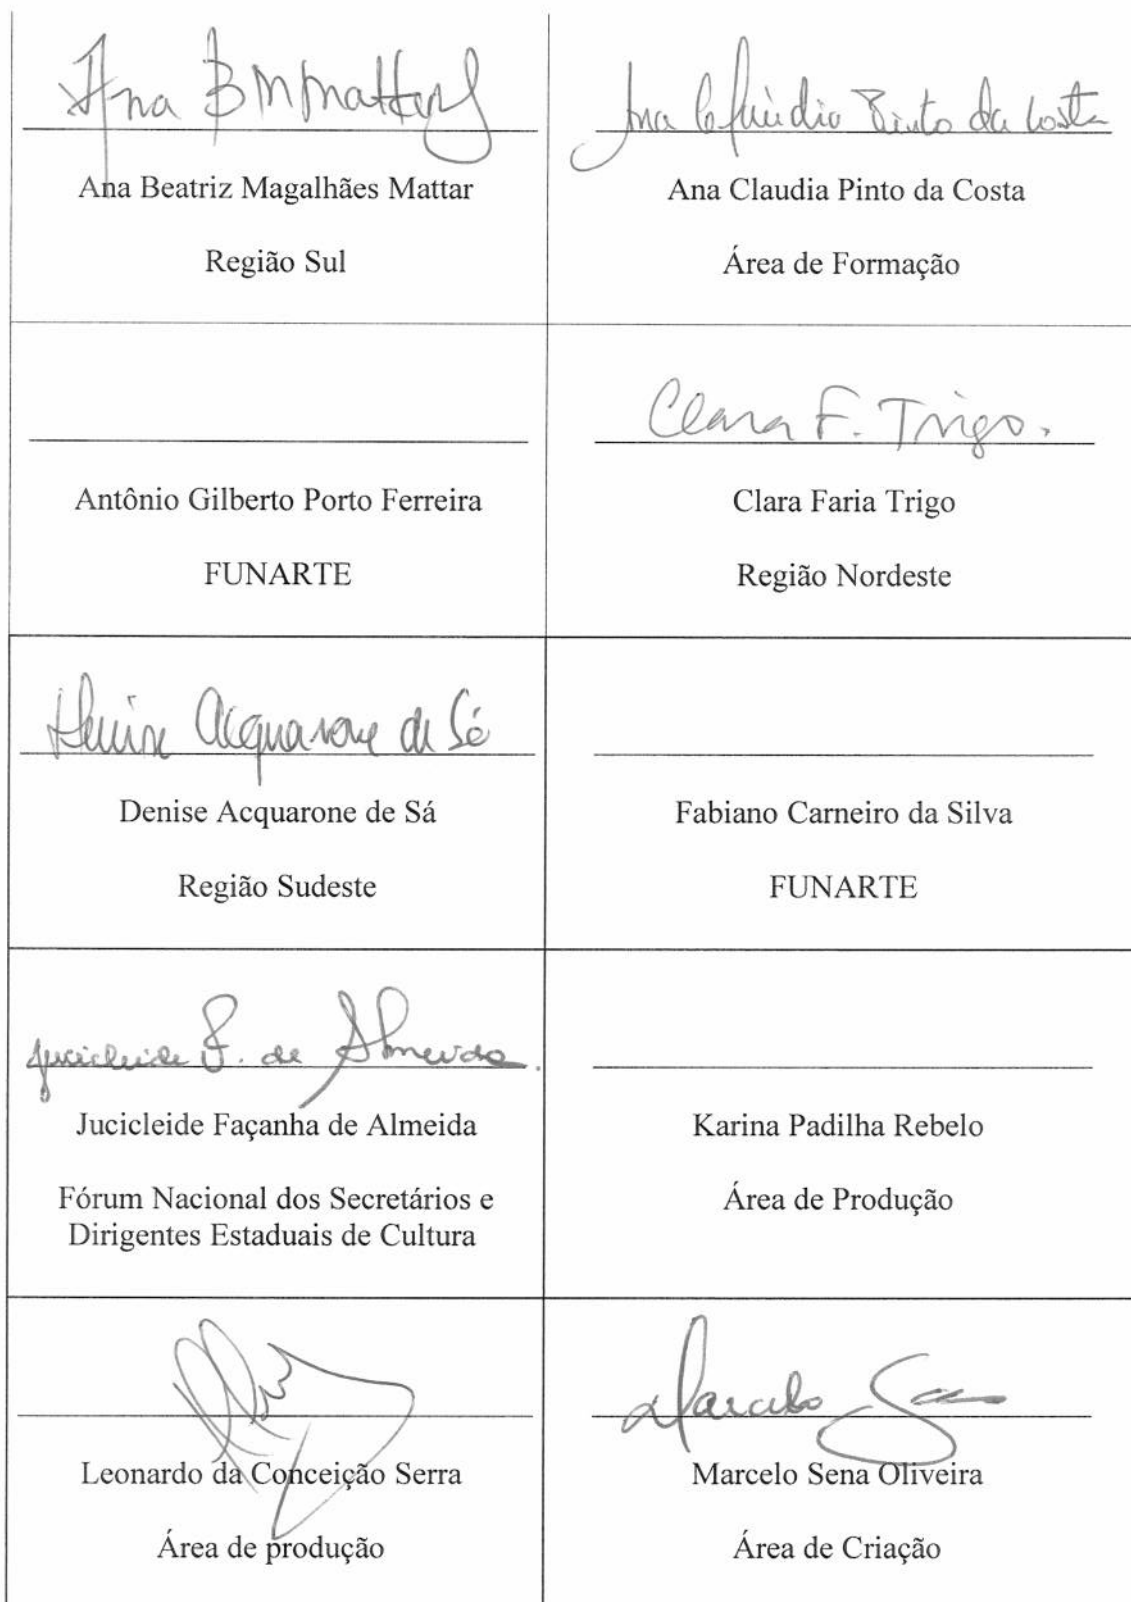 Ana B M Mattar
Ana Beatriz Magalhães Mattar
Região Sul
Ana Claudia Pinto da Costa
Ana Claudia Pinto da Costa
Área de Formação
Antônio Gilberto Porto Ferreira
FUNARTE
Clara F. Trigo.
Clara Faria Trigo
Região Nordeste
Denise Acquarone de Sá
Denise Acquarone de Sá
Região Sudeste
Fabiano Carneiro da Silva
FUNARTE
Jucicleide F. de Almeida.
Jucicleide Façanha de Almeida
Fórum Nacional dos Secretários e
Dirigentes Estaduais de Cultura
Karina Padilha Rebelo
Área de Produção
Leonardo da Conceição Serra
Área de produção
Marcelo Sena
Marcelo Sena Oliveira
Área de Criação